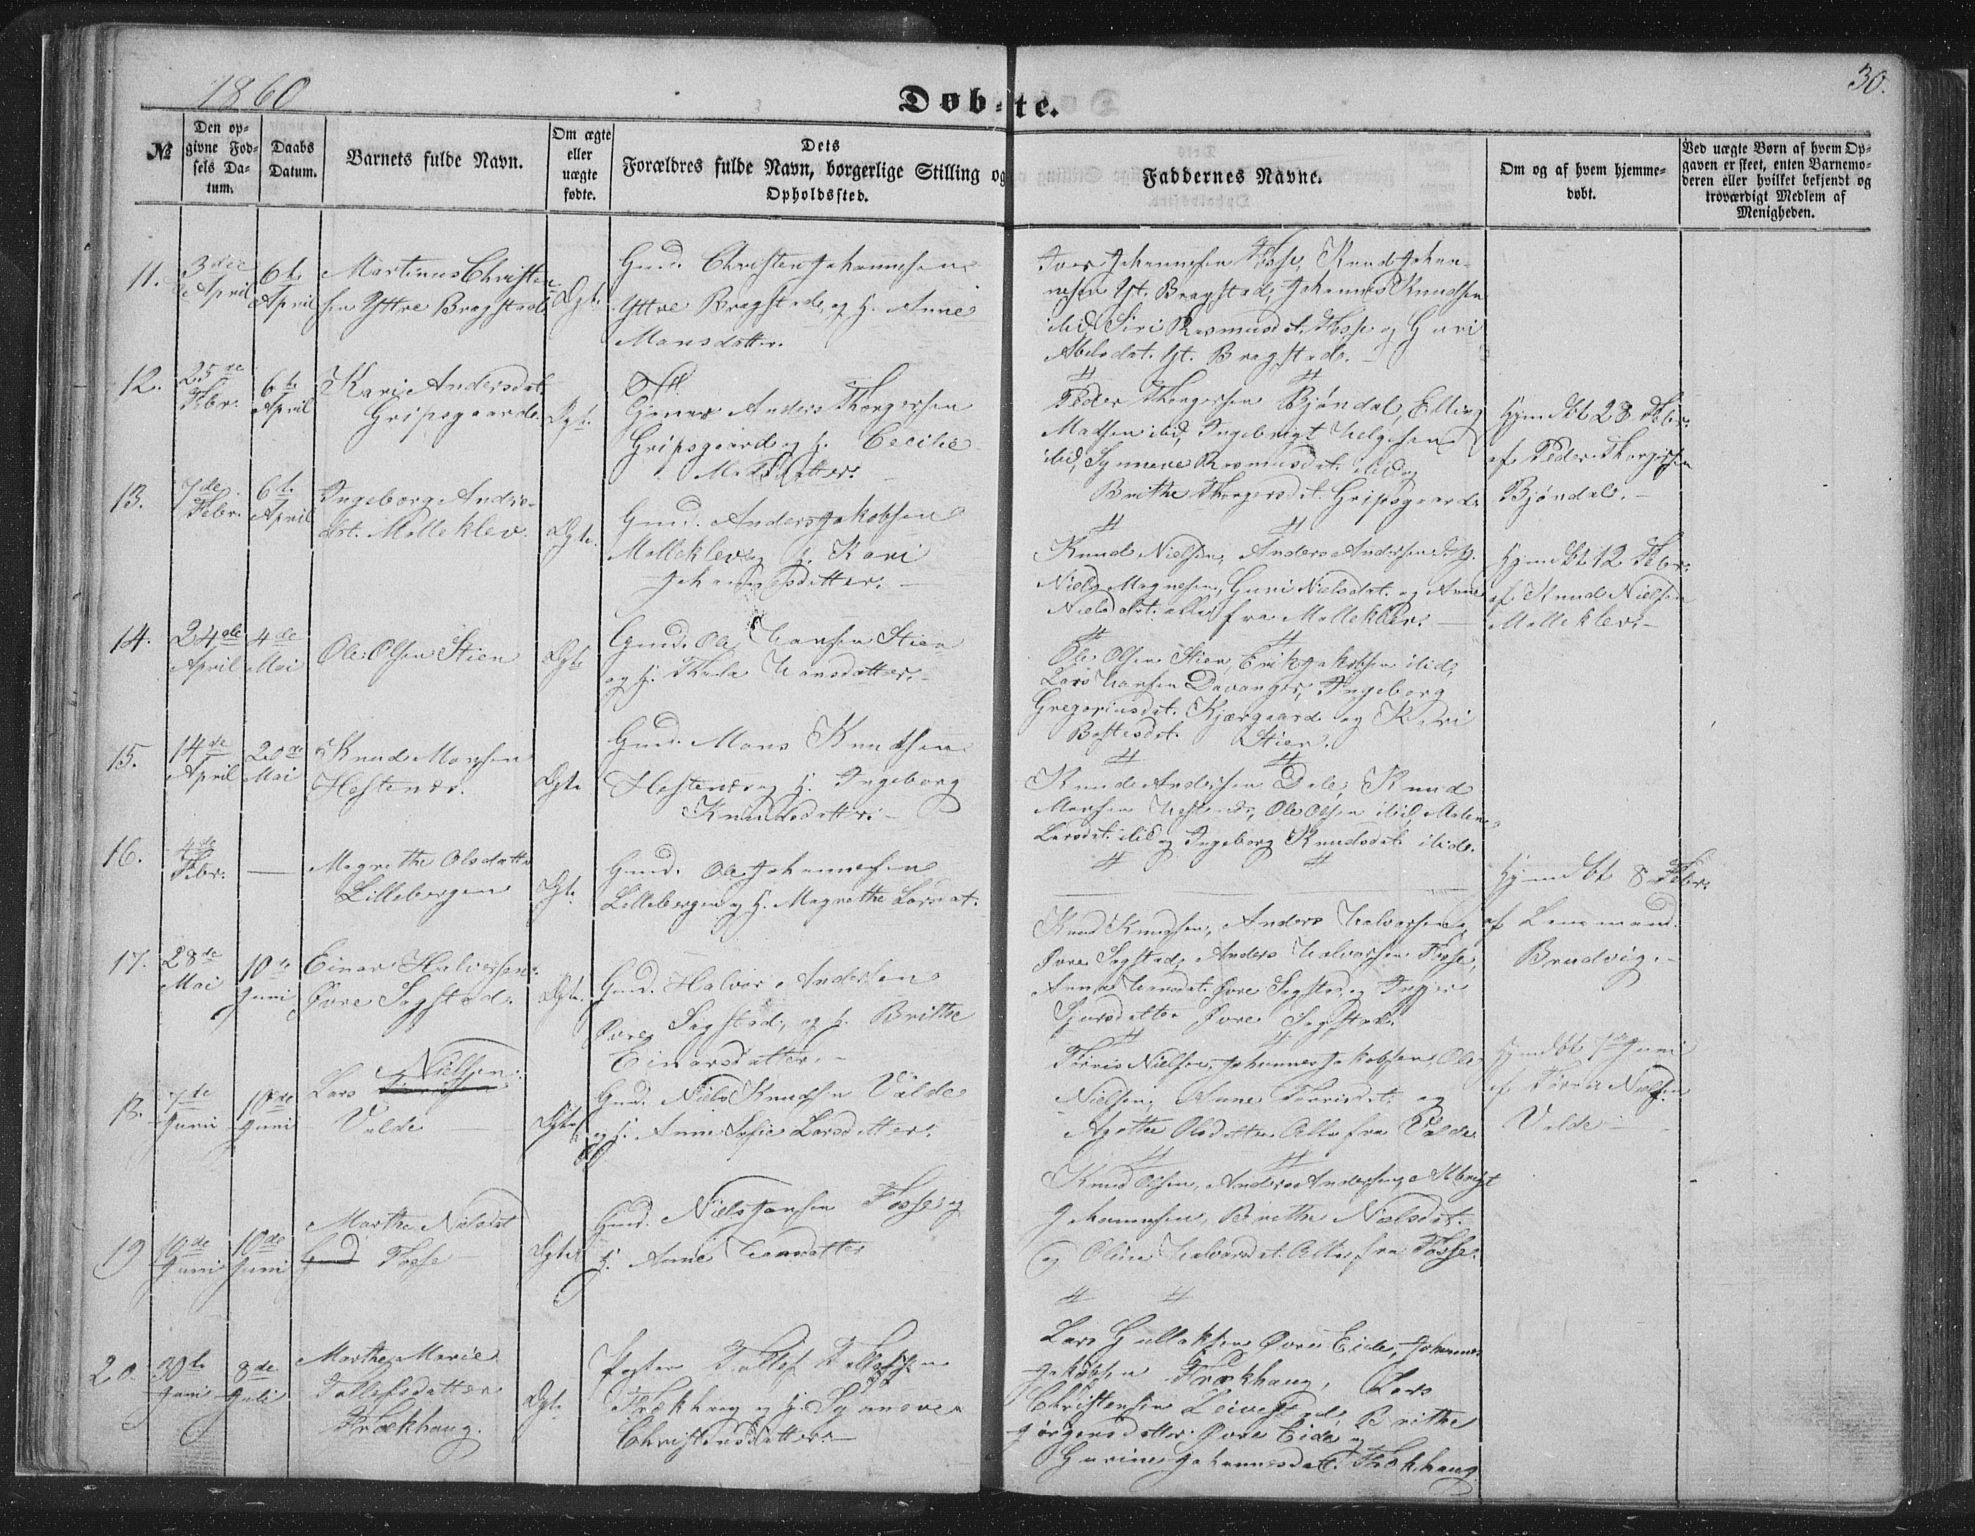 1860
30.
Døbte.
№
Den opgivne Fødsels Datum.
Daabs Datum.
Barnets fulde Navn.
Om ægte eller uægte fødte.
Dets Forældres fulde Navn, borgerlige Stilling og Opholdssted.
Faddernes Navne.
Om og af hvem hjemmedøbt.
Ved uægte Børn af hvem Opgaven er skeet, enten Barnemoderen eller hvilket bekjendt og troværdigt Medlem af Menigheden.
11.
3die April
6te April
Martinus Christensen Yttre Bragstad
Ægte
Gmd. Christen Johannesen
Yttre Bragstad, og H. Anne
Mansdatter.
Ivar Johannesen Fosse, Knud Johannesen Yt. Bragstad, Johannes Knudsen
ibid, Siri Rasmusdat. Fosse og Guri
Abelsdat. Yt. Bragstad.
12.
25de Febr.
6te April
Kari Andersdat.
Gripsgaard.
Ægte.
Anders Thorgersen
Gripsgaard og H. Cecilie
Peder Thorgersen Bjøndal, Elling
Madsen ibid, Ingebrigt Helgesen
ibid, Synneve Rasmusdat. ibid og
Brithe Thorgersdat. Gripsgaard.
Hjemdbt 28 Febr.
af Peder Thorgersen
Bjøndal.
13.
7de Febr.
6te April
Ingeborg Andersdat. Mølleklev.
Ægte.
Gmd. Anders Jakobsen
Mølleklev og H. Kari
Johannesdatter.
Knud Nielsen, Anders Andersen
Niels Magnesen, Guri Nielsdat. og Anne
Nielsdat. alle fra Mølleklev.
Hjemdbt 12 Febr.
af Knud Nielsen
Mølleklev.
14.
24de April
4de Mai
Ole Olsen Stien
Ægte
Gmd. Ole Hansen Stien
og H. Hansdatter.
Ole Olsen Stien, Erik Jakobsen ibid,
Lars Hansen Davanger, Ingeborg
Gregoriusdat. Kjærgaard og Kari
Stien.
15.
14de April
20de Mai
Knud Monsen
Hestenes.
Ægte
Gmd. Mons Knudsen
Hestenes og H. Ingeborg
Knudsdatter.
Knud Andersen Dale, Knud
Monsen Hestenes, Ole Olsen ibid, Malene
Larsdat. ibid og Ingeborg Knudsdat. ibid.
16.
4de Febr.
Magrethe Olsdatter
Lillebergen
Ægte.
Gmd. Ole Johannesen
Lillebergen og H. Magrethe Larsdat.
Hjemdbt 8 Febr.
af Lensmand
Brudvig.
17.
28de Mai
10de Juni
Einar Halvorsen
Øvre Sagstad.
Ægte.
Gmd. Halvor Andersen
Øvre Sagstad, og H. Brithe
Einarsdatter.
Knud Knudsen, Anders Halvorsen
Øvre Sagstad, Anders Halvorsen Fosse,
Anna Hansdat. Øvre Sagstad og Inger
Sjursdatter Øvre Sagstad.
18.
7de Juni
10de Juni
Lars Nielsen
Valde
Ægte
Gmd. Niels Knudsen Valde
og H. Anne Sofie Larsdatter.
Tørris Nielsen, Johannes Jakobsen, Ole
Nielsen, Anne Tørrisdat. og
Agathe Olsdatter Alle fra Valde
Hjemdbt 7de Juni
af Tørris Nielsen
Valde
19
10de Juni
10de Juni
Marthe Nielsdat
Fosse
Ægte
Gmd. Niels Jonsen Fosse og
H. Anne Hansdatter
Knud Olsen, Anders Andersen, Albrigt
Johannesen, Brithe Nielsdat.
og Oline Halvorsdat. Alle fra Fosse.
20.
30te Juni
8de Juli
Marthe Marie
Tollefsdatter
Frækhaug.
Ægte
Tollef Tollefsen
Frækhaug og H. Synneve
Christensdatter.
Lars Gullaksen Øvre Eide, Johannes
Jakobsen Frækhaug, Lars
Christensen Leivestad, Brithe
Jørgensdatter Øvre Eide og
Gurine Johannesdat. Frækhaug